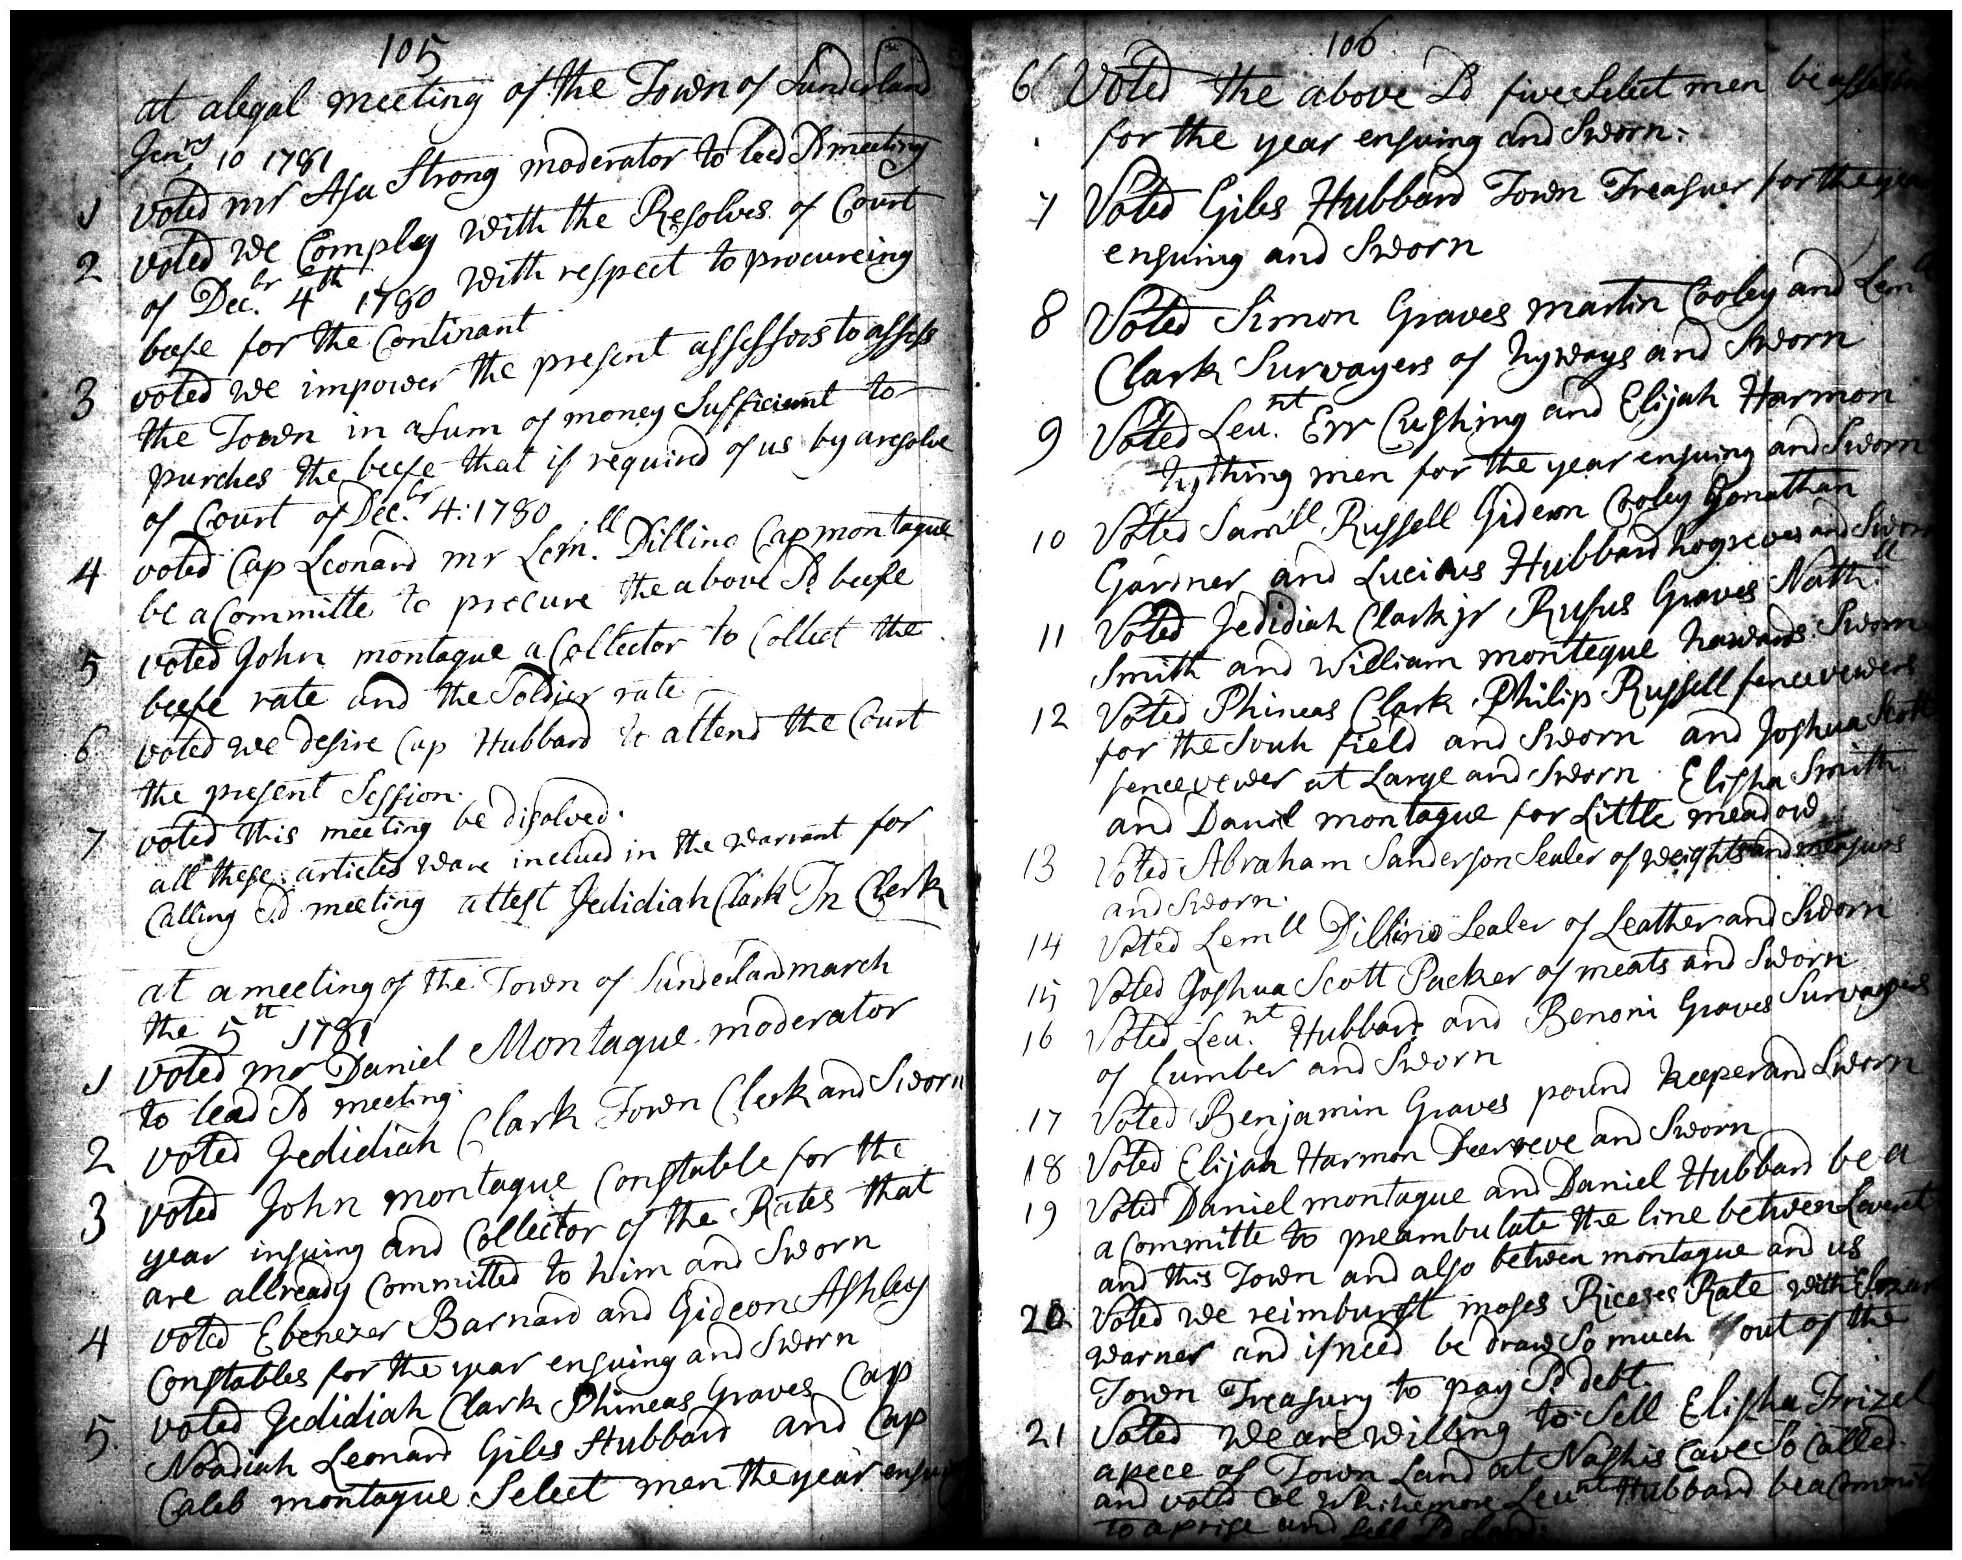 105
at alegal meeting of the Town of Sunderland
Jenry 10 1781
1 voted mr Asa Strong moderator to leed Sd meeting
2 voted we Comploy with the Resolves of Court
of Decbr 4th 1780 with respect to procureing
beefe for the Continant
3 voted we impower the present assessors to assess
the Town in asum of money Sufficiant to
purches the beefe that is required of us by aresolve
of Court of Decbr 4: 1780
4 voted Cap Leonard mr Lemll Dilling Cap montague
be a Committe to procure the above Sd beefe
5 voted John montague a Collector to Collect the
beefe rate and the Soldier rate
6 voted we desire Cap Hubbard to attend the Court
the present Session.
7 voted this meeting be disolved.
all these articles ware inclued in the warrant for
Calling Sd meeting attest Jedidiah Clark Tn Clerk
at a meeting of the Town of Sunderland march
the 5tt 1781
1 voted mr Daniel Montague moderator
to lead Sd meeting.
2 voted Jedidiah Clark Town Clerk and Sworn
3 voted John montague Constable for the
year insuing and Collector of the Rates that
are allready Committed to him and Sworn
4 voted Ebenezer Barnard and Gideon Ashley
Constables for the year ensuing and Sworn
5. voted Jedidiah Clark Phineas Graves Cap
Noadiah Leonard Giles Hubbard and Cap
Caleb montague Select men the year ensuing
106
6 Voted the above Sd five Select men be assessors
for the year ensuing and Sworn:
7 Voted Giles Hubbard Town Treasuer for the year
ensuing and Sworn
8 Voted Simon Graves martin Cooley and Lemll
Clark Survayers of hyways and Sworn
9 Voted Leunt Err Cushing and Elijah Harmon
tything men for the year ensuing and Sworn
10 Voted Samll Russell Gideon Cooley Jonathan
Gardner and Lucious Hubbard hogreves and Sworn
11 Voted Jedidiah Clark jr Rufus Graves Nathll
Smith and William montegue hawards Sworn
12 Voted Phineas Clark Philip Russell fencevewers
for the Souh field and Sworn and Joshua Scott
fencevewer at Large and Sworn. Elisha Smith
and Daniel montague for Little meadow
13 Voted Abraham Sanderson Sealer of weights and measures
and Sworn.
14 Voted Lemll Dilling Sealer of Leather and Sworn
15 Voted Joshua Scott Packer of meats and Sworn
16 Voted Leunt Hubbard and Benoni Graves Survayers
of Lumber and Sworn
17 Voted Benjamin Graves pound keeper and Sworn
18 Voted Elijah Harmon Deer reve and Sworn
19 Voted Daniel montague and Daniel Hubbard be a
a Committe to preambulate the line between Leveret
and this Town and also betwen montague and us
20 Voted we reimburst moses Riceses Rate with Elezar
warner and if need be draw So much out of the
Town Treasury to pay Sd debt.
21 Voted we are willing to Sell Elisha Frizel
apece of Town Land at Nashis Cave So Called
and voted Coll Whitemore Leunt Hubbard be a Commite
to aprise and Sell Sd Land.